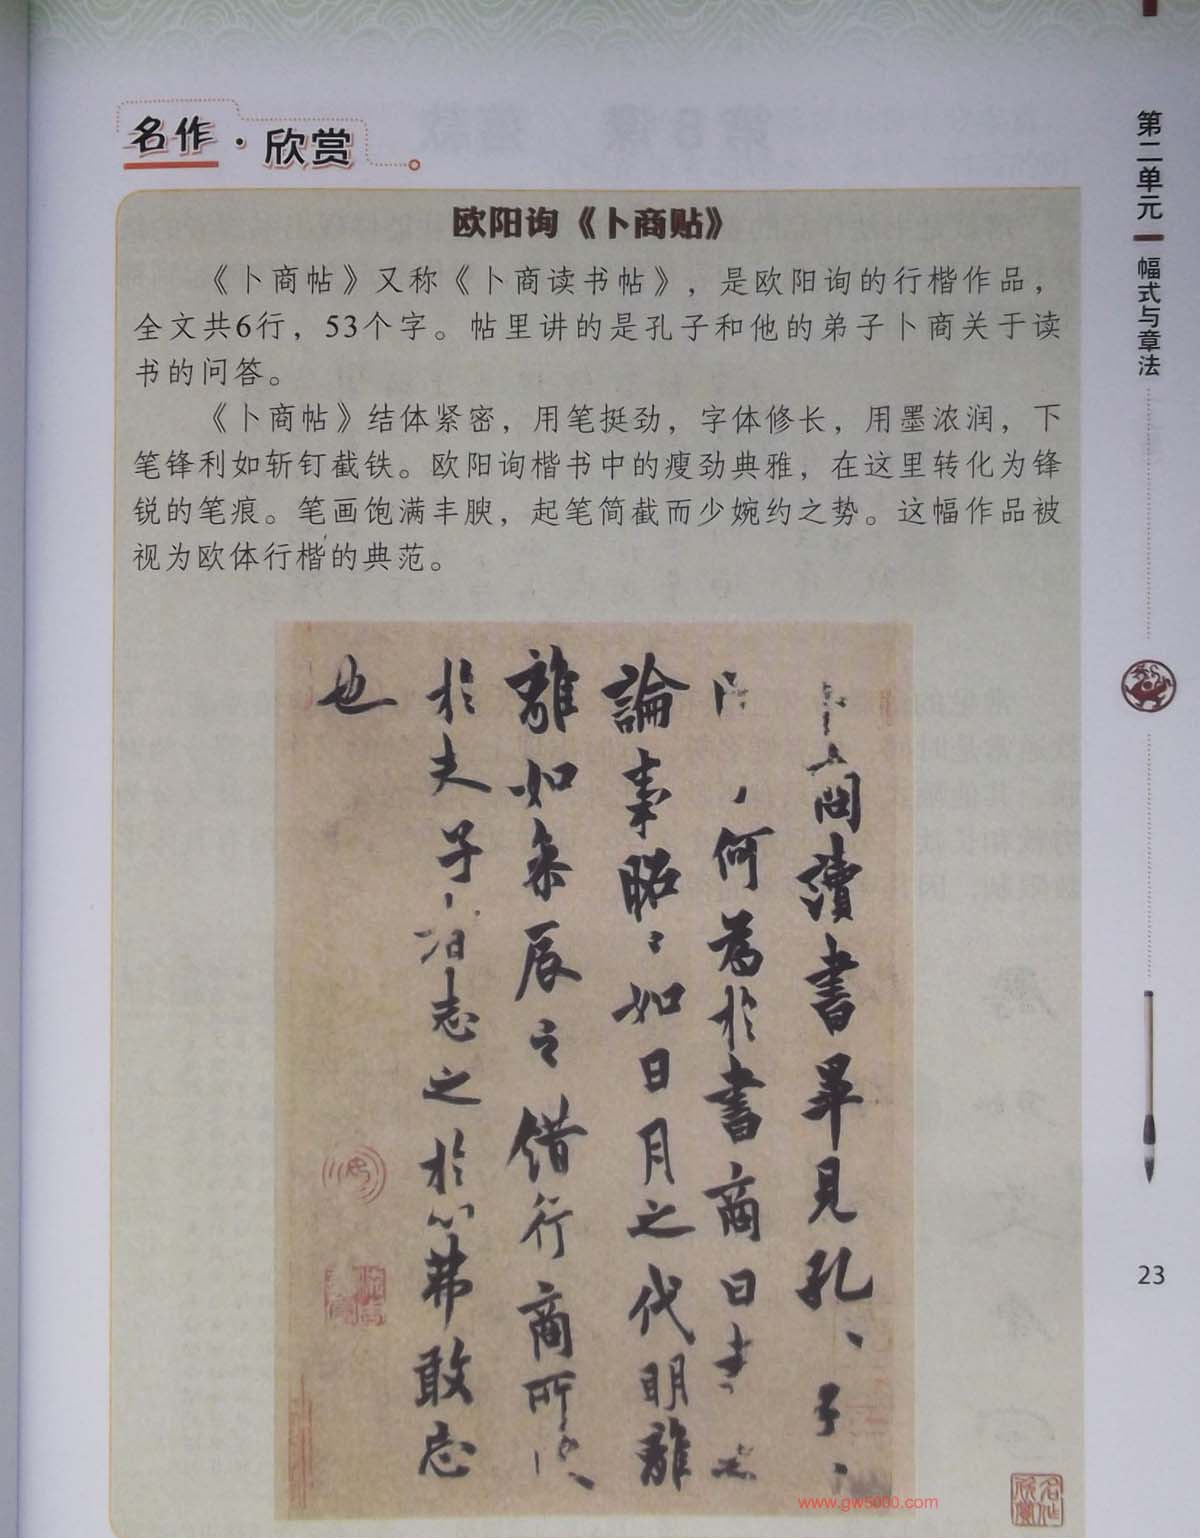 名作·欣赏
欧阳询《卜商贴》
《卜商帖》又称《卜商读书帖》，是欧阳询的行楷作品，
全文共6行，53个字。帖里讲的是孔子和他的弟子卜商关于读
书的问答。
《卜商帖》结体紧密，用笔挺劲，字体修长，用墨浓润，下
笔锋利如斩钉截铁。欧阳询楷书中的瘦劲典雅，在这里转化为锋
锐的笔痕。笔画饱满丰腴，起笔简截而少婉约之势。这幅作品被
视为欧体行楷的典范。
卜商讀書畢見孔〻子〻
何為於書商曰書
論事昭〻如日月之代明離
離如参辰之錯行商所
於夫子者志之於心弗敢忘
也
第二单元 幅式与章法
23
名作欣赏
www.gw5000.com